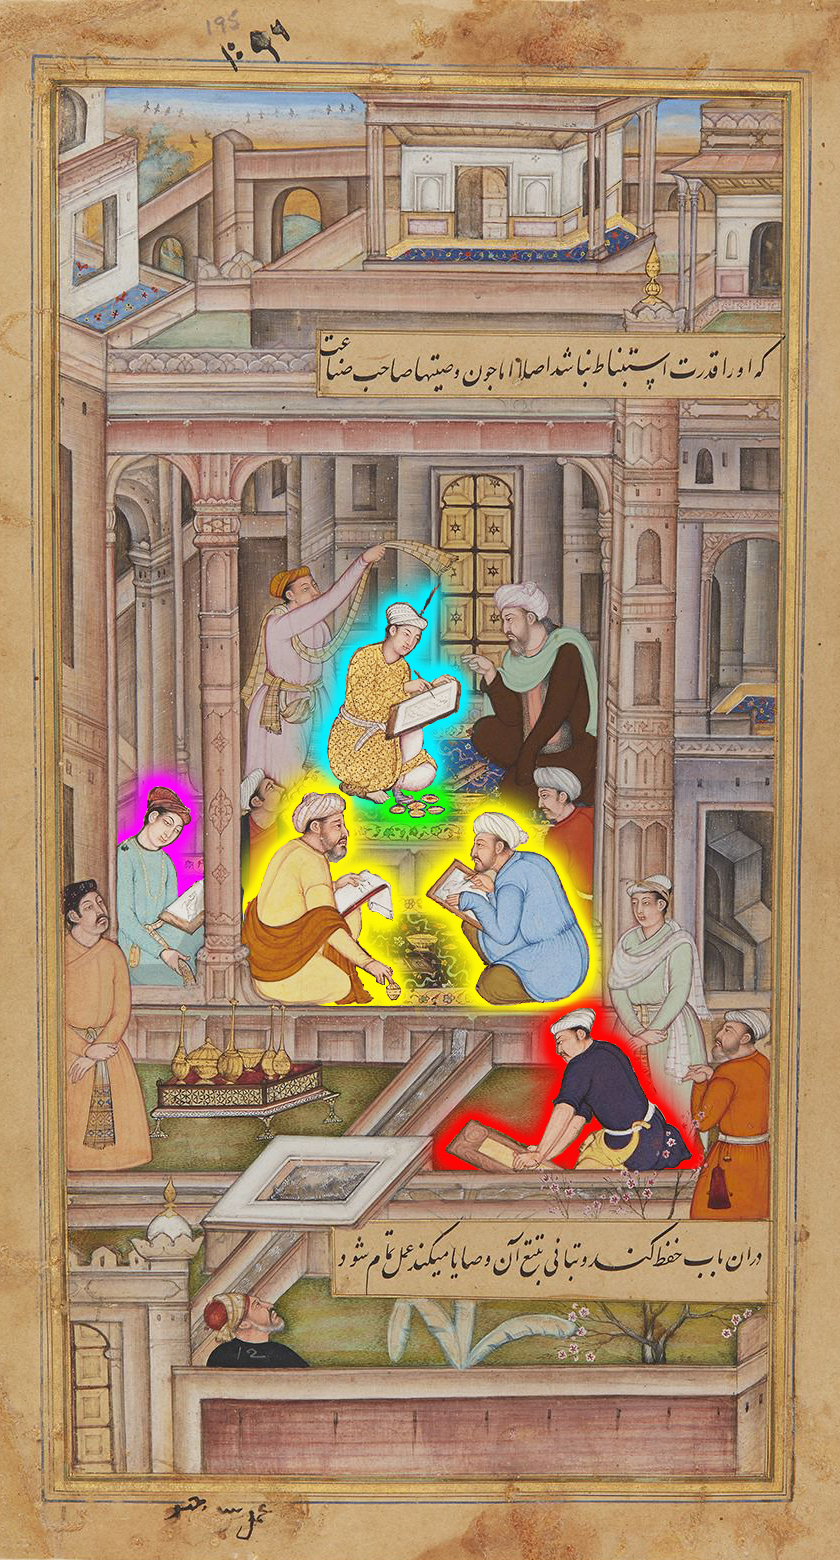 195
که او را قدرت استنباط نباشد اصلا اما چون وصیتها صاحب صناعت
دران باب حفظ کند و تبانی بتتبع آن وصایا میکند عمل تمام شود
12